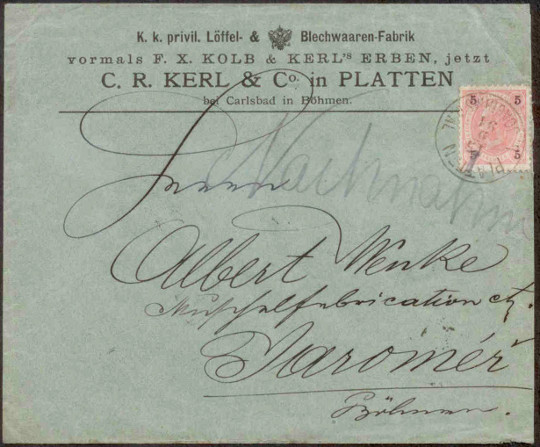 K. k. privil. Löffel- & Blechwaaren-Fabrik
vormals F. X. KOLB & KERL's ERBEN, jetzt
C. R. KERL & Co. in PLATTEN
bei Carlsbad in Böhmen.
5 5
5
PLATTEN
Nachnahme
Herrn
Albert Wenke
Muschelfabrication etz.
Jaroměř
Böhmen.